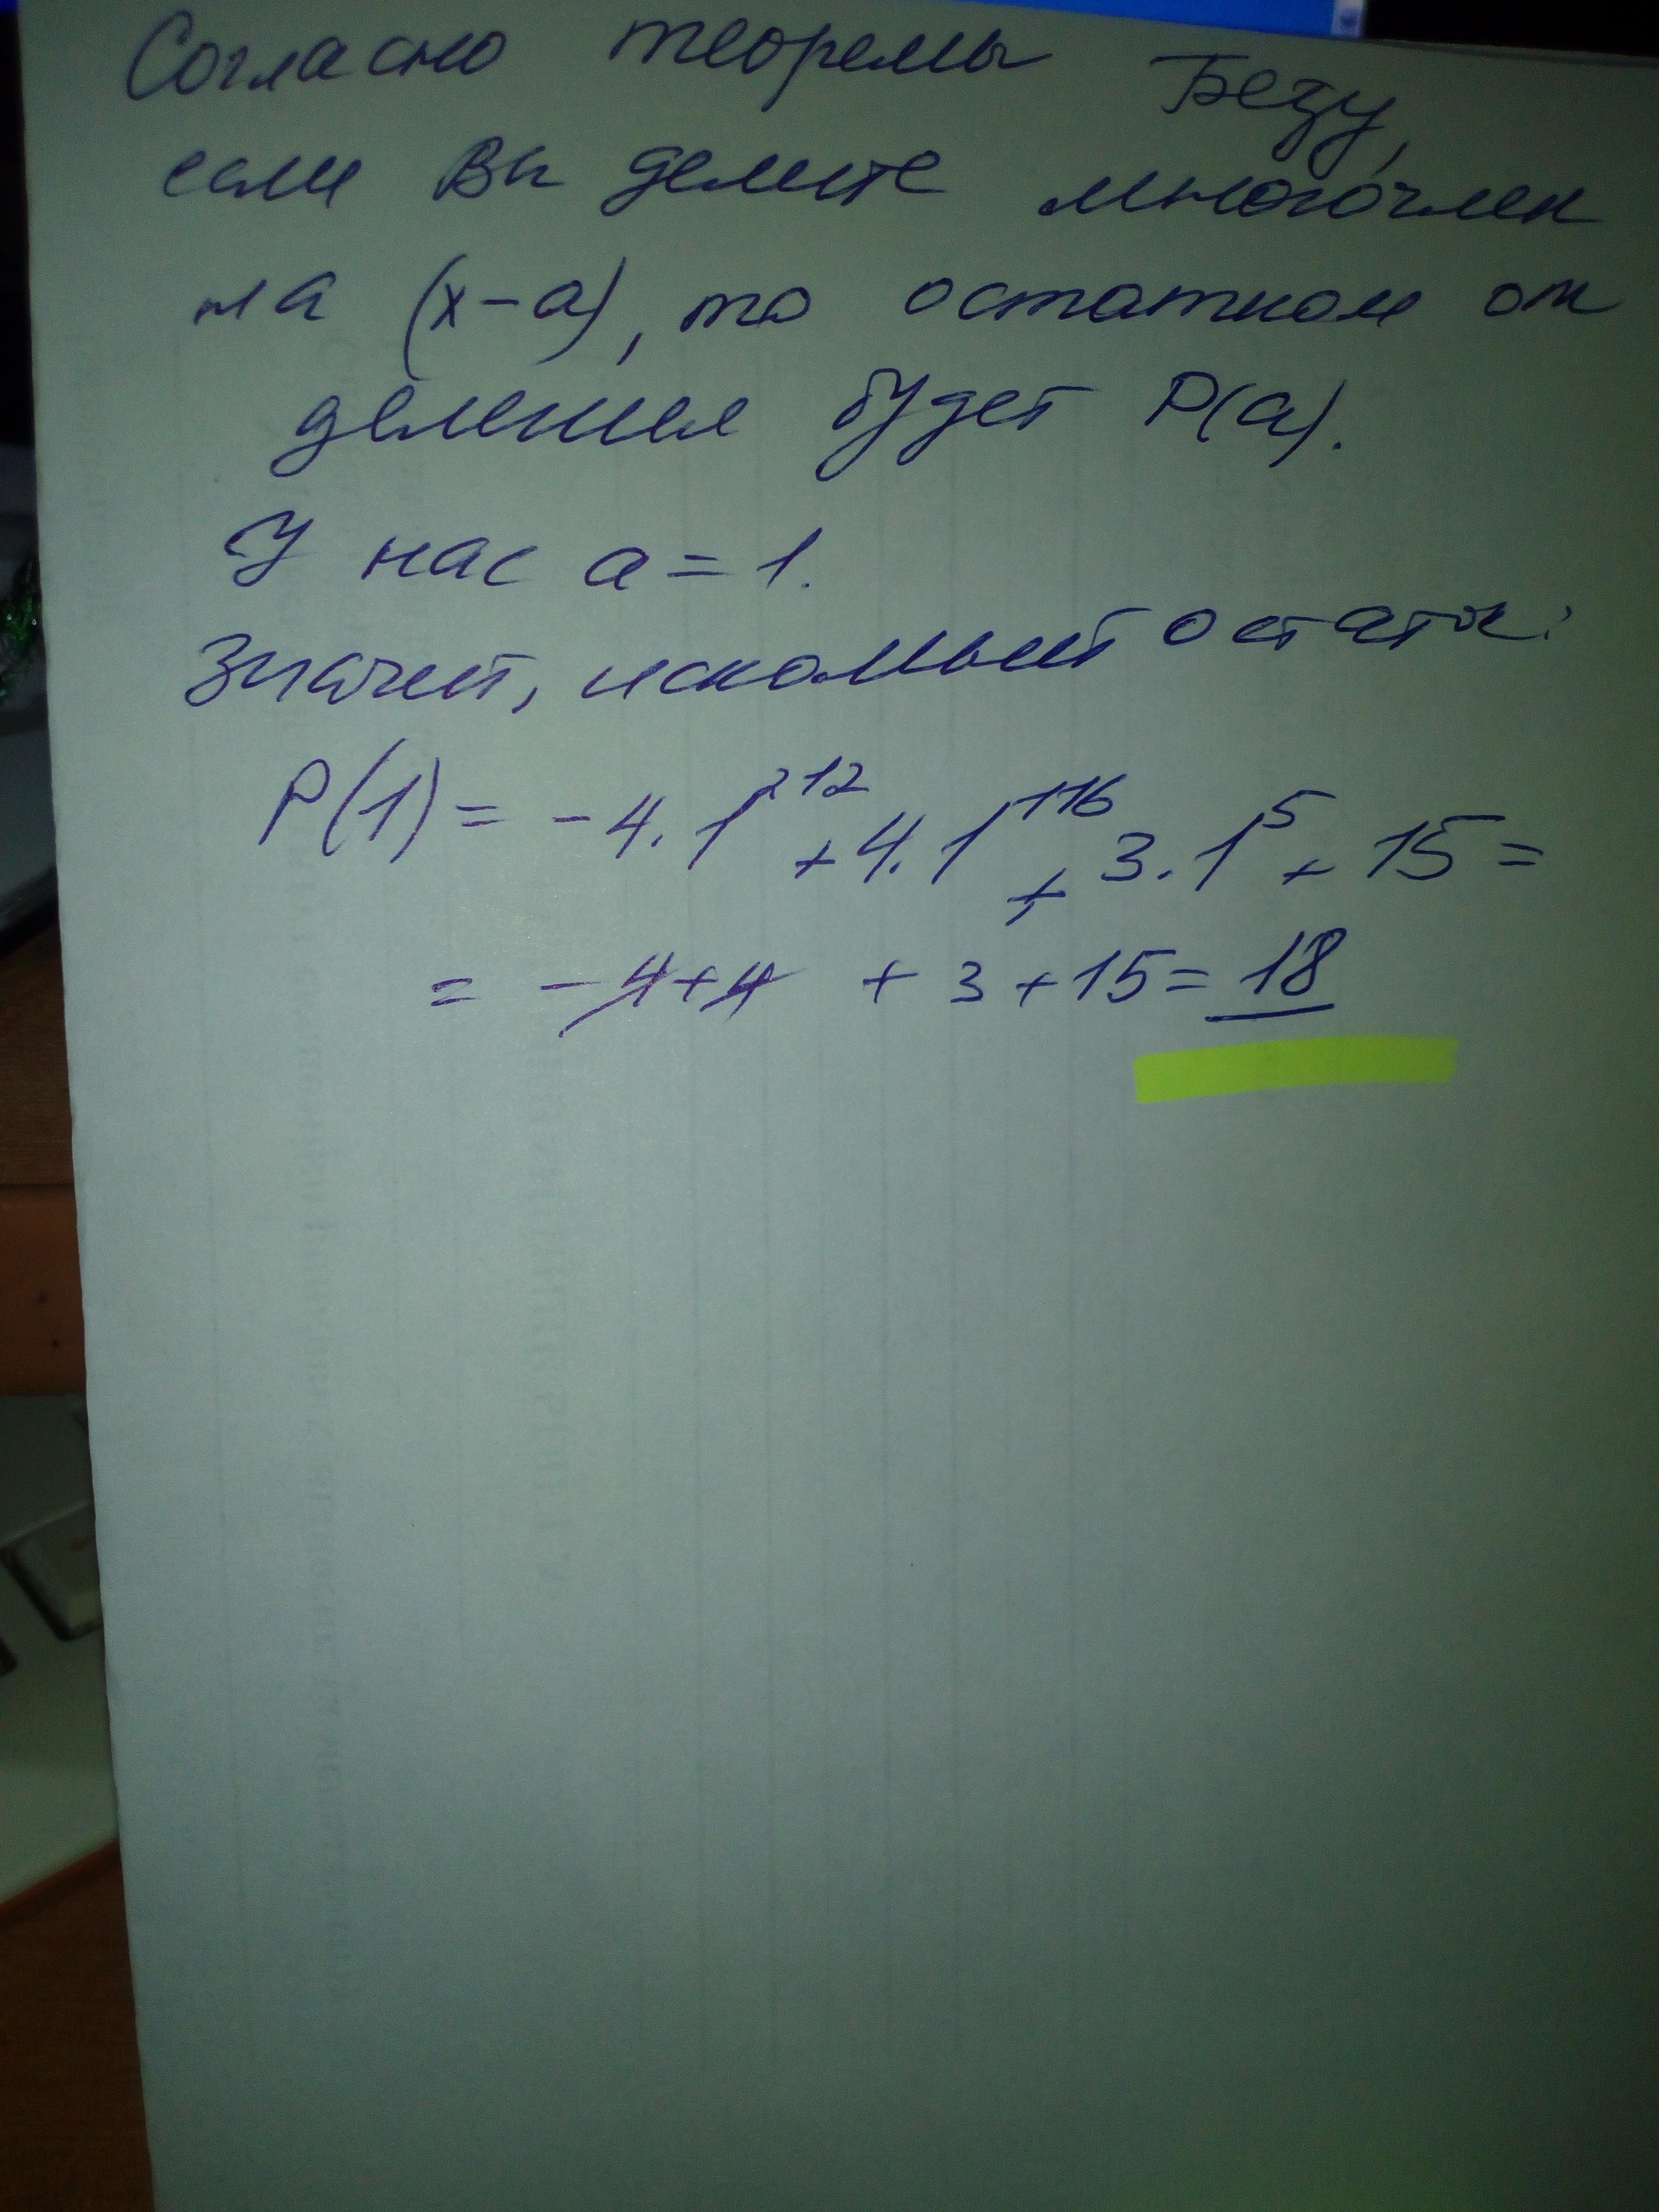 Согласно теоремы Безу,
если Вы делите многочлен
на (x-a), то остатком от
деления будет P(a).
У нас a=1.
Значит, искомый остаток:
P(1) = -4·1²¹² + 4·1¹¹⁶ + 3·1⁵ + 15 =
= -4+4 + 3 + 15 = 18